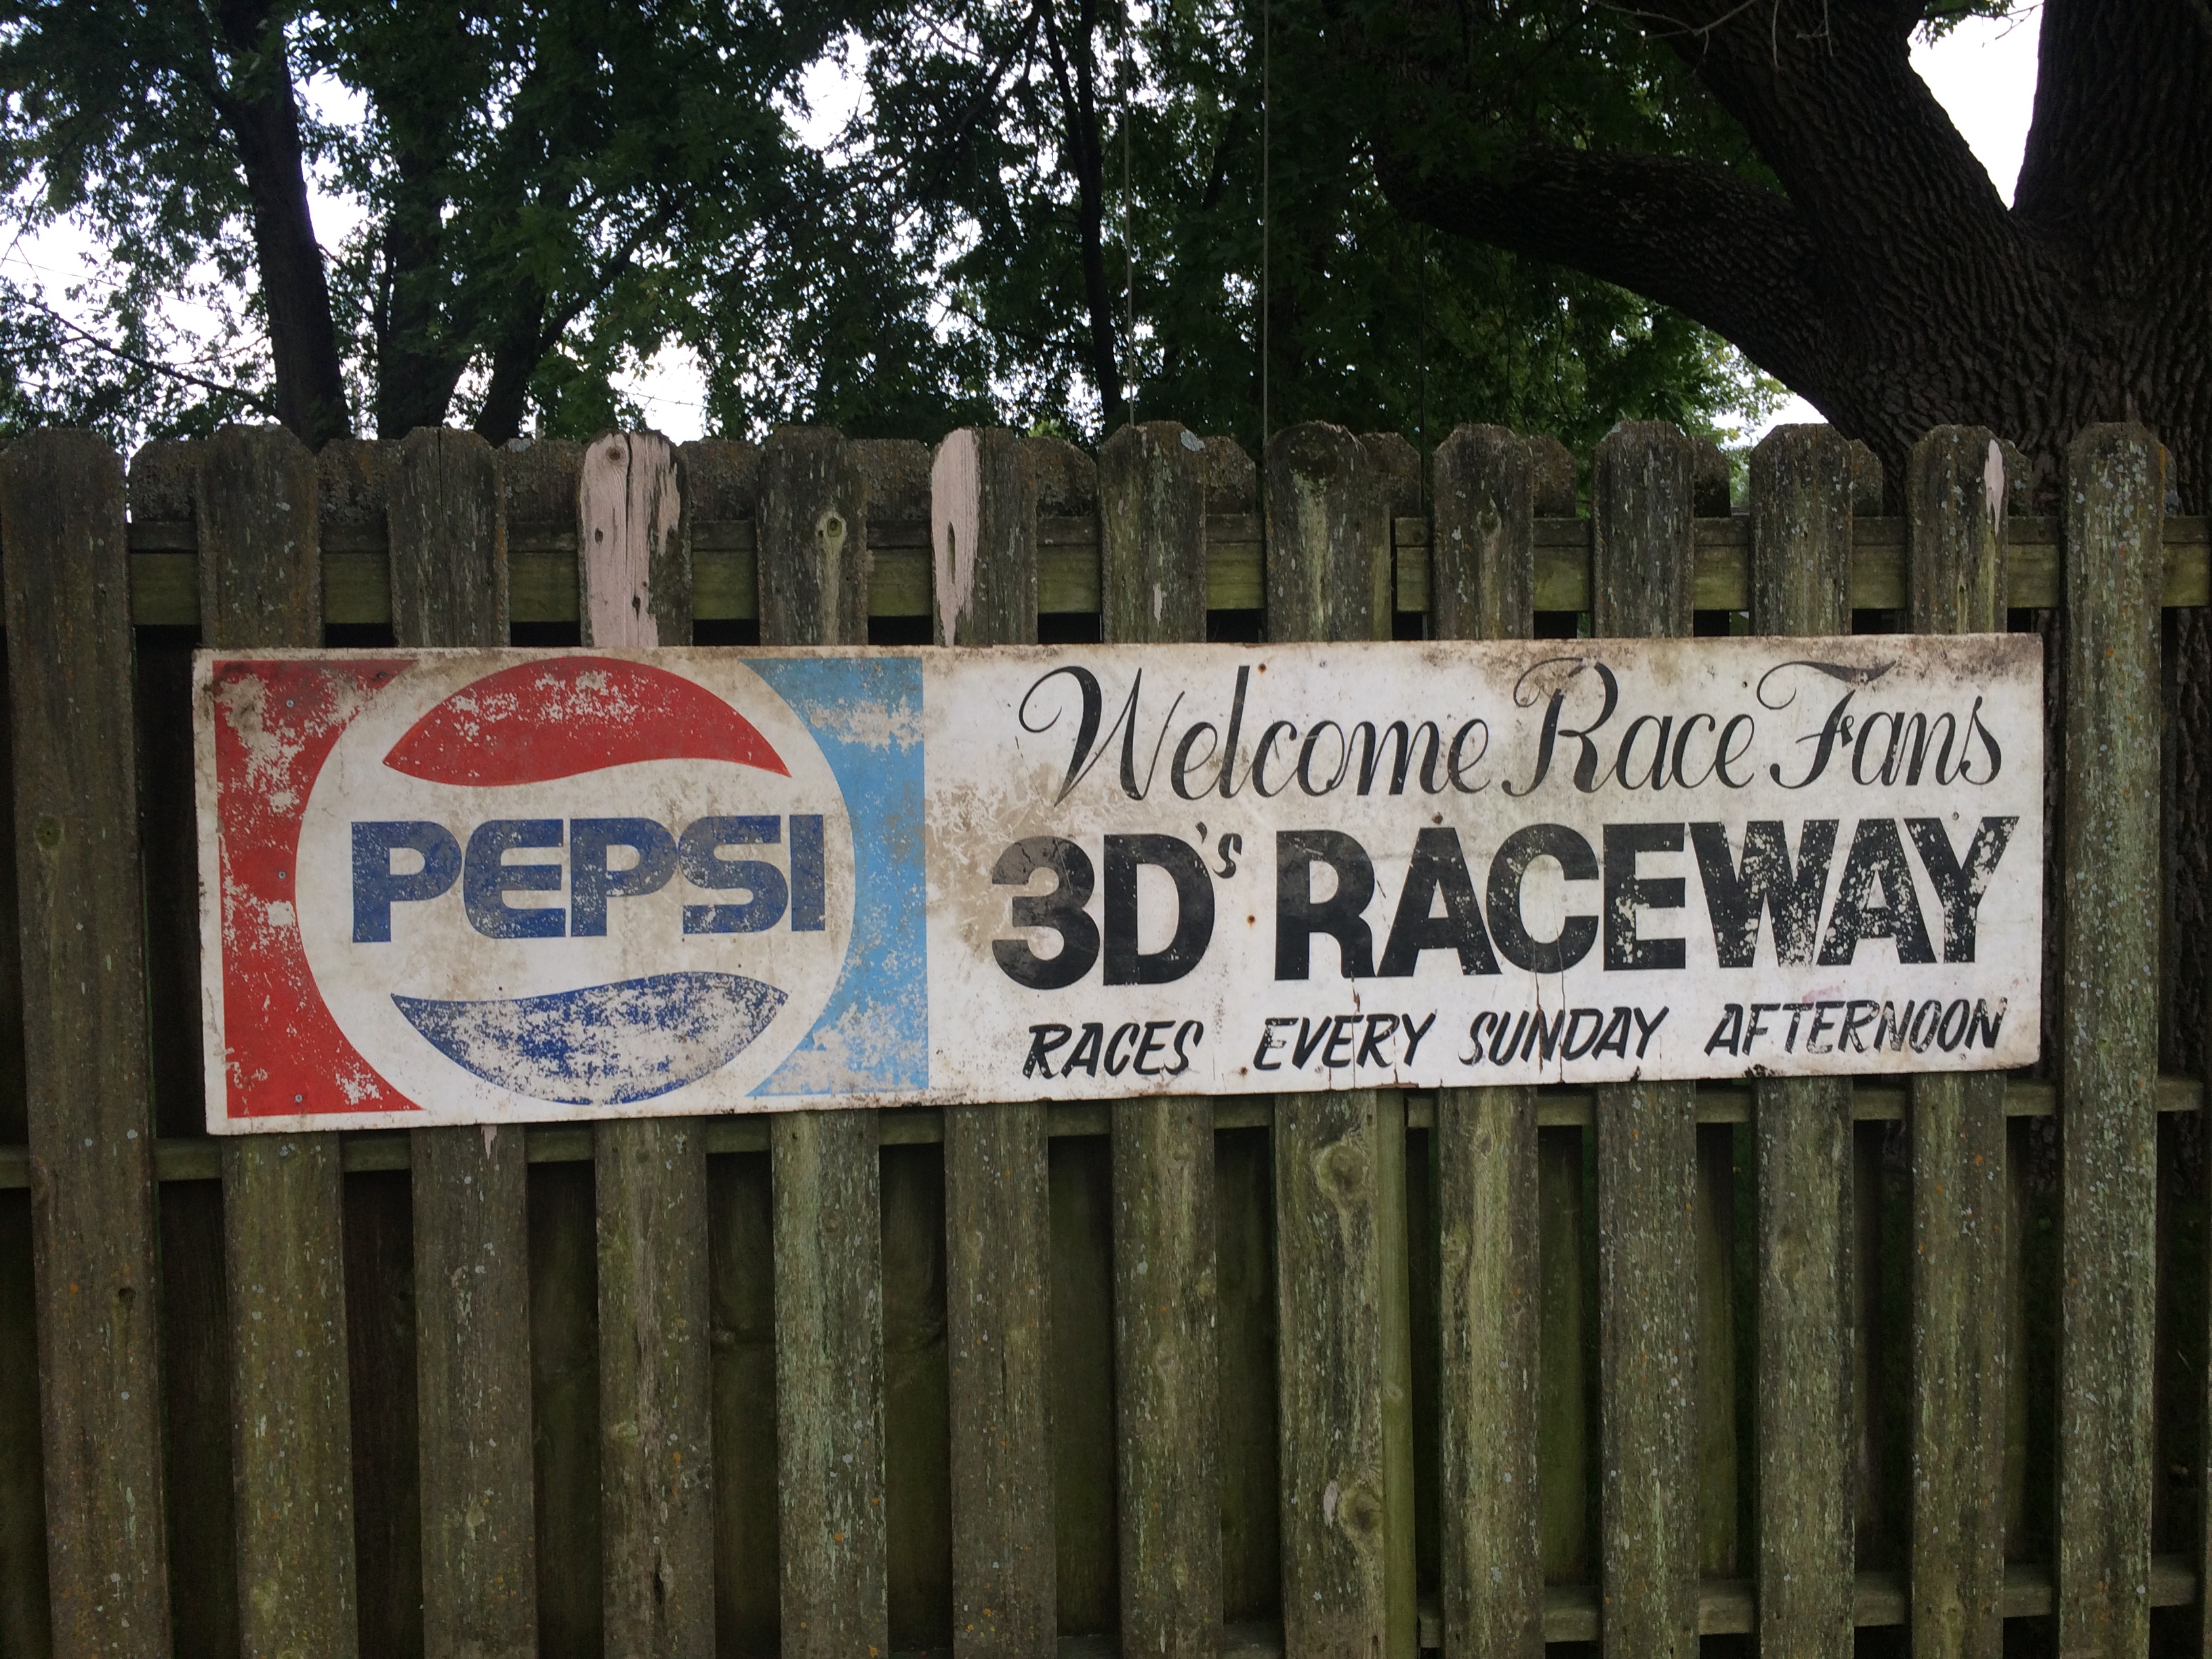 PEPSI
Welcome Race Fans
3D's RACEWAY
RACES EVERY SUNDAY AFTERNOON